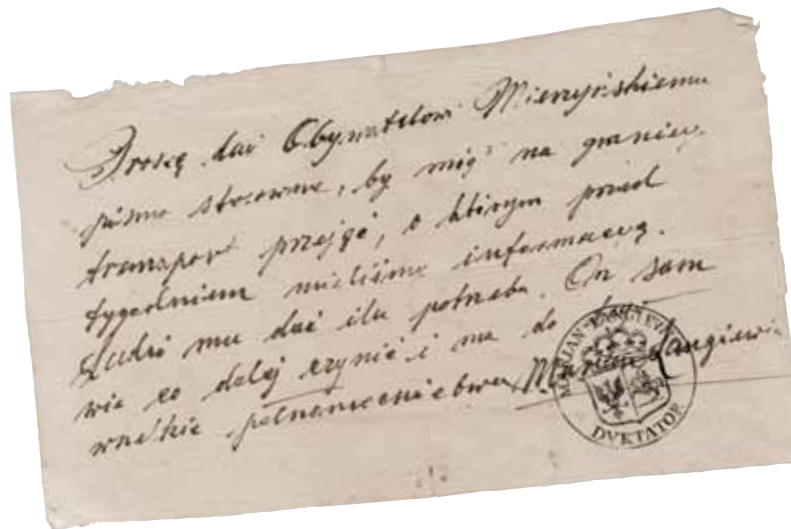 Proszę dać Obywatelowi Mierzyńskiemu
pismo stosowne, by mógł na granicy
transport przejąć, o którym przed
tygodniem mieliśmy informacyą.
Ludzi mu dać ilu potrzeba. On sam
wie co dalej czynić i ma do
wszelkie pełnomocnictwa Marian Langiewicz
MARJAN LANGIEWICZ
DYKTATOR